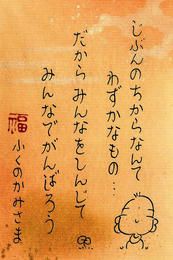 じぶんのちからなんて
わずかなもの…
だから みんなをしんじて
みんなでがんばろう
福
ふくのかみさま